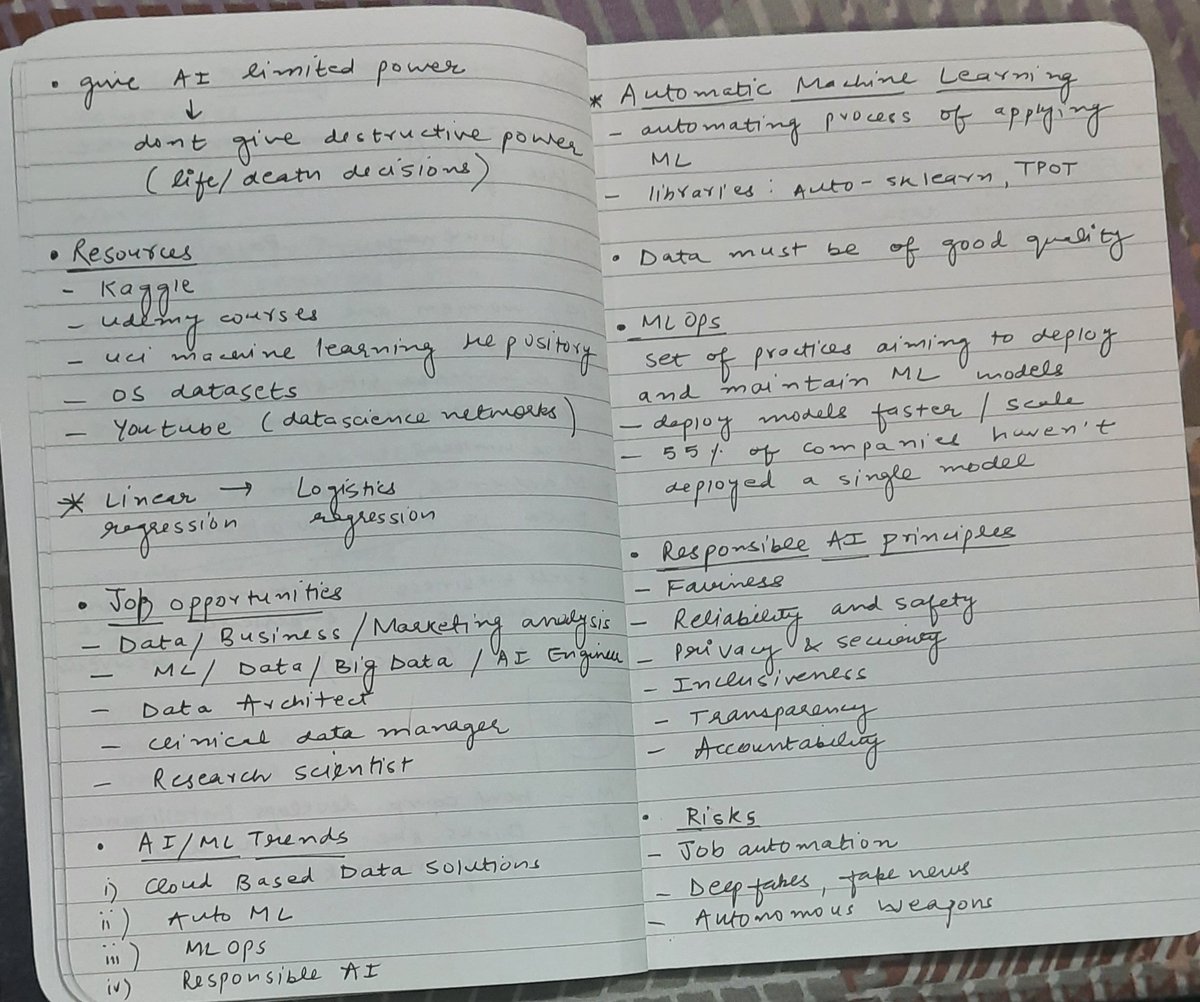 • give AI limited power
↓
dont give destructive power
(life/death decisions)
• Resources
- Kaggle
- udemy courses
- uci machine learning repository
- OS datasets
- Youtube (datascience networks)
* Linear → Logistics
regression regression
• Job opportunities
- Data/Business/Marketing analysis
- ML/Data/Big Data/AI Engineer
- Data Architect
- clinical data manager
- Research scientist
• AI/ML Trends
i) Cloud Based Data Solutions
ii) Auto ML
iii) MLOps
iv) Responsible AI
* Automatic Machine Learning
- automating process of applying
ML
- libraries: Auto-sklearn, TPOT
• Data must be of good quality
• MLOps
set of practices aiming to deploy
and maintain ML models
- deploy models faster / scale
- 55% of companies haven't
deployed a single model
• Responsible AI principles
- Fairness
- Reliability and safety
- Privacy & security
- Inclusiveness
- Transparency
- Accountability
• Risks
- Job automation
- Deepfakes, fake news
- Autonomous weapons